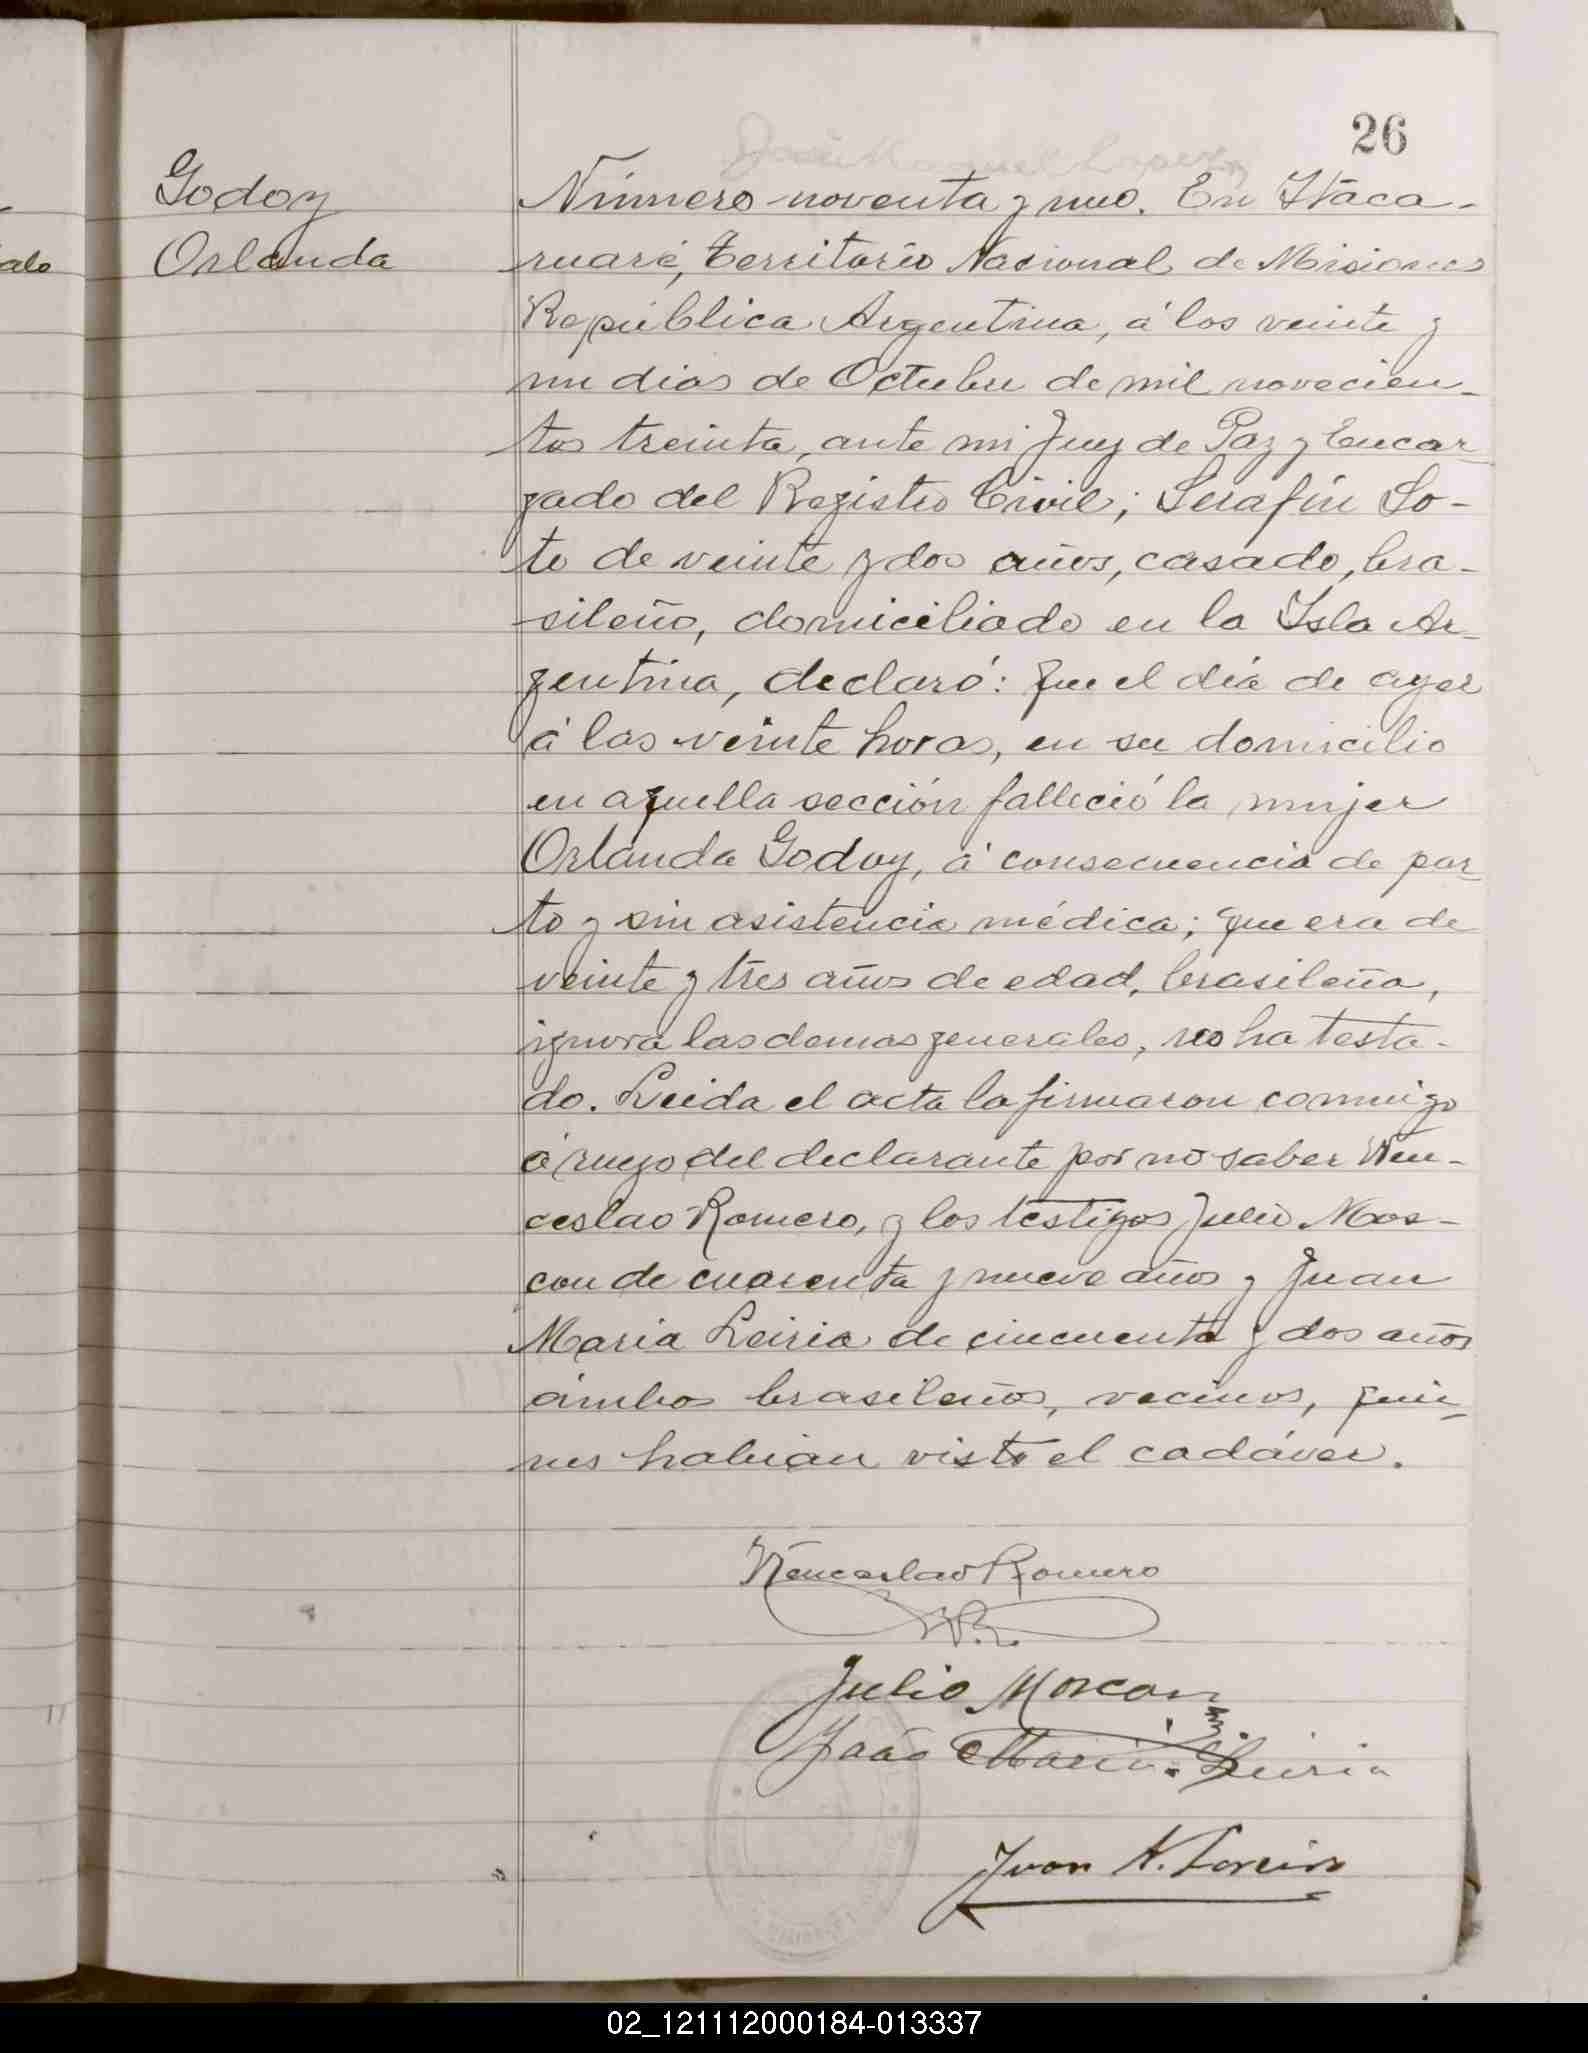 26
Godoy
Orlanda
alo
Número noventa y uno. En Itaca-
ruaré, territorio Nacional de Misiones
República Argentina, á los veinte y
un dias de Octubre de mil novecien-
tos treinta, ante mi Juez de Paz y Encar-
gado del Registro Civil; Serafin So-
to de veinte y dos años, casado, bra-
sileño, domiciliado en la Isla Ar-
gentina, declaró: que el día de ayer
á las veinte horas, en su domicilio
en aquella sección falleció la mujer
Orlanda Godoy, á consecuencia de par-
to y sin asistencia médica; que era de
veinte y tres años de edad, brasileña,
ignora las demas generales, no ha testa-
do. Leida el acta la firmaron conmigo
á ruego del declarante por no saber Wen-
ceslao Romero, y los testigos Julio Mos-
con de cuarenta y nueve años y Juan
Maria Leiria de cincuenta y dos años
ámbos brasileños, vecinos, quie-
nes habian visto el cadáver.
Wenceslao Romero
W.R.
Julio Moscon
João Maria Leiria
Juan
02_121112000184-013337